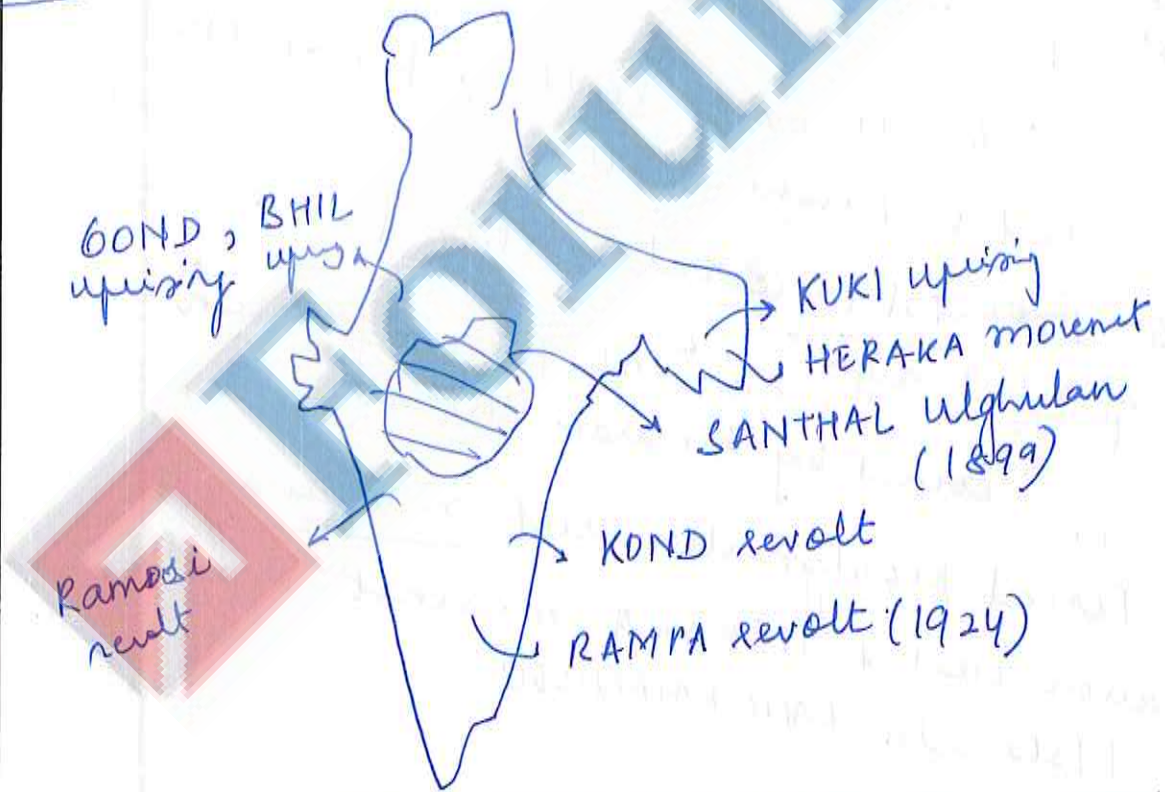 Forum
GOND, BHIL
uprising uprisg
KUKI uprising
HERAKA movemet
SANTHAL Ulghulan
(1899)
KOND revolt
RAMPA revolt (1924)
Ramosi
revolt